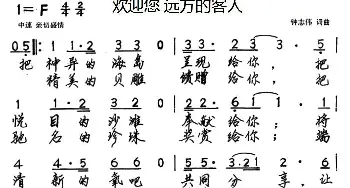 欢迎您 远方的客人
1=F 4/4 2/4
中速 亲切盛情
钟志伟 词曲
0 5 1 · 2 3 3 0 3 3 2 3 1 ·
把 神异的海岛 呈现给你, 把
精美的贝雕 馈赠给你,
2 · 2 1 2 0 2 2 · 6 1 1 ·
悦目的沙滩 奉献给你; 将
驰名的珍珠 奖赏给你; 将
4 · 5 6 6 0 5 5 · 3 · 2 1 2 · 6
清新的氧吧 共同分享, 让